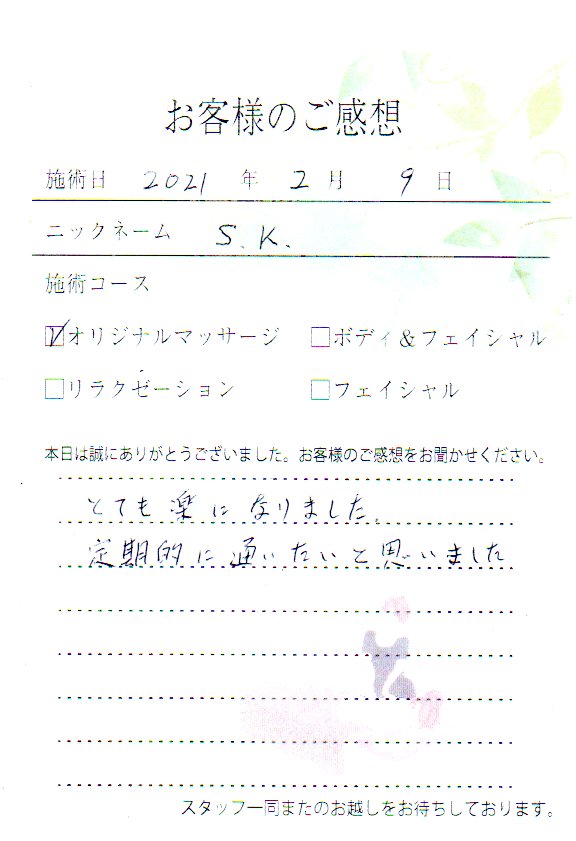 お客様のご感想
施術日 2021 年 2 月 9 日
ニックネーム S.K.
施術コース
☑オリジナルマッサージ □ボディ&フェイシャル
□リラクゼーション □フェイシャル
本日は誠にありがとうございました。お客様のご感想をお聞かせください。
とても楽になりました。
定期的に通いたいと思いました
スタッフ一同またのお越しをお待ちしております。